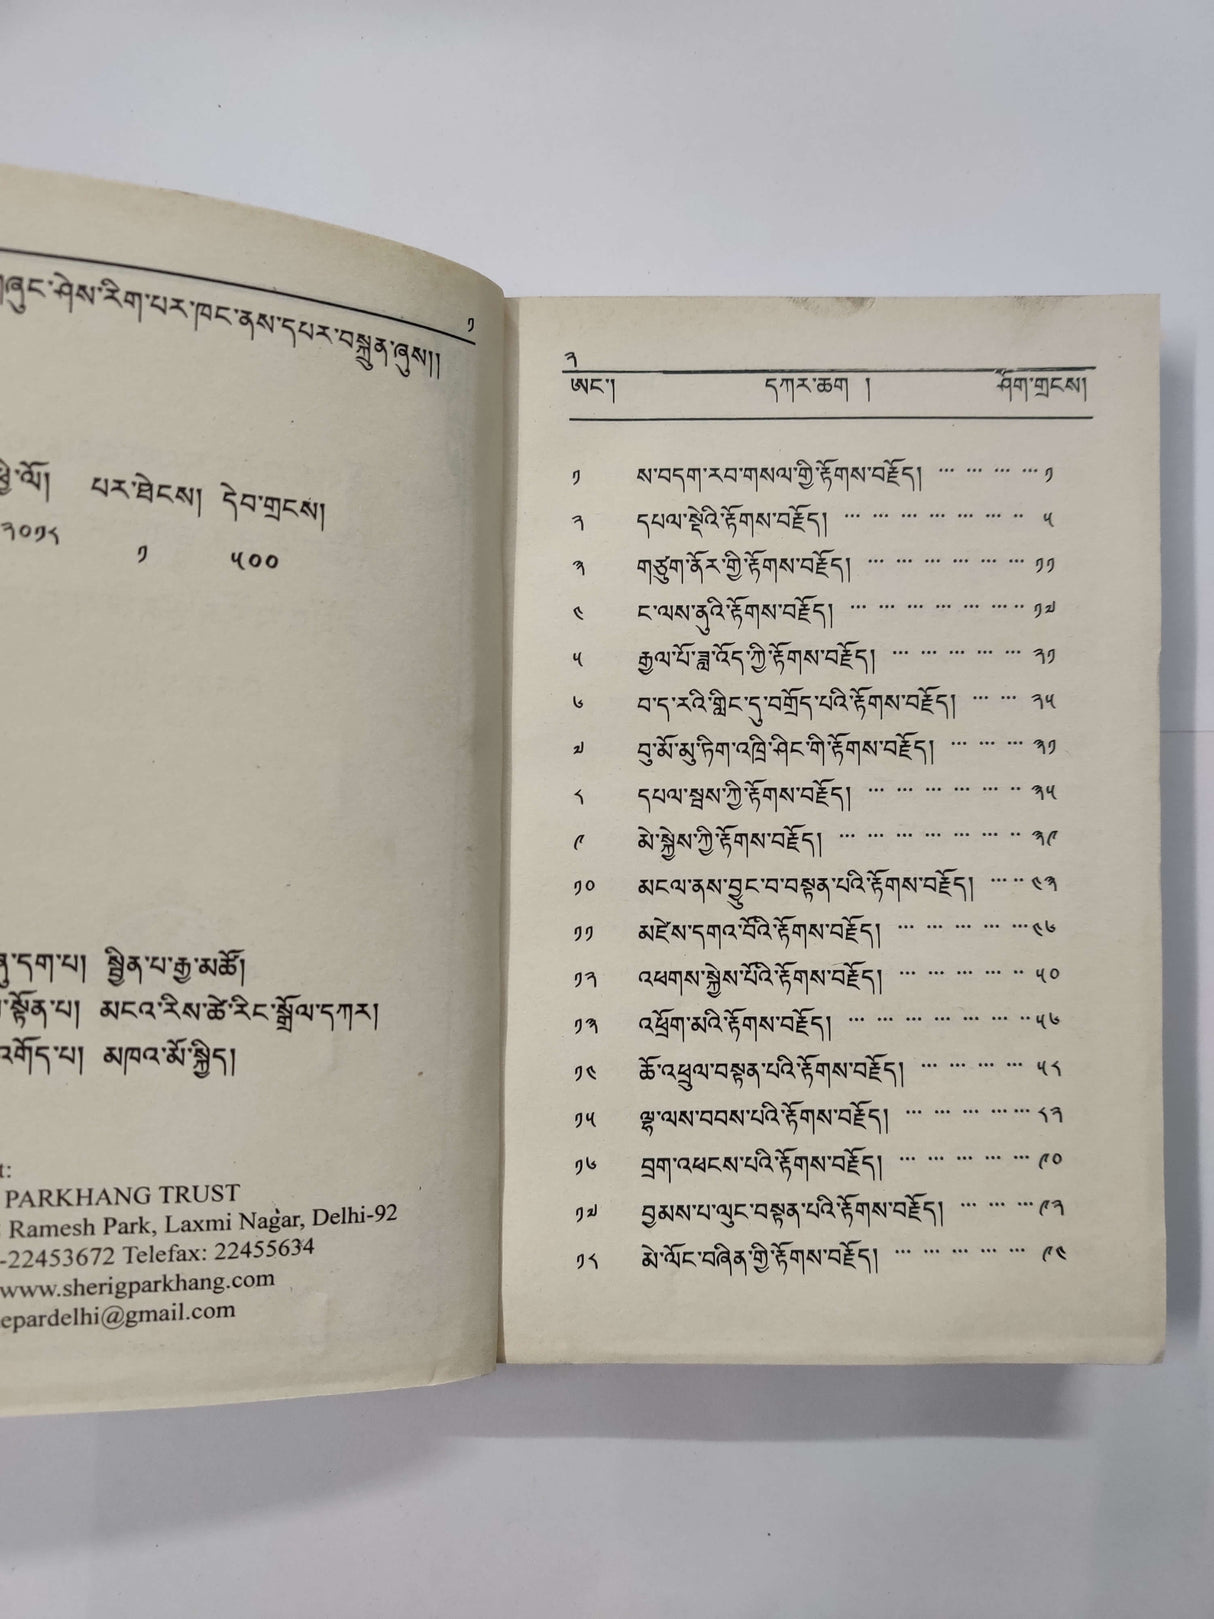 ༡
གཞུང་ཤེས་རིག་པར་ཁང་ནས་དཔར་བསྐྲུན་ཞུས།།
སྤྱི་ལོ། པར་ཐེངས། དེབ་གྲངས།
༢༠༡༨ ༡ ༥༠༠
དག་པ། སྦྱིན་པ་རྒྱ་མཚོ།
སྟོན་པ། མངའ་རིས་ཚེ་རིང་སྒྲོལ་དཀར།
འགོད་པ། མཁའ་མོ་སྐྱིད།
t:
PARKHANG TRUST
Ramesh Park, Laxmi Nagar, Delhi-92
-22453672 Telefax: 22455634
www.sherigparkhang.com
epardelhi@gmail.com
༢
ཨང་། དཀར་ཆག ། ཤོག་གྲངས།
༡ ས་བདག་རབ་གསལ་གྱི་རྟོགས་བརྗོད། ... ... ... ... ༡
༢ དཔལ་སྡེའི་རྟོགས་བརྗོད། ... ... ... ... ... ... .. ༥
༣ གཙུག་ནོར་གྱི་རྟོགས་བརྗོད། ... ... ... ... ... ... ༡༡
༤ ང་ལས་ནུའི་རྟོགས་བརྗོད། ... ... ... ... ... ... .. ༡༧
༥ རྒྱལ་པོ་ཟླ་འོད་ཀྱི་རྟོགས་བརྗོད། ... ... ... ... ... ༢༡
༦ བ་ད་རའི་གླིང་དུ་བགྲོད་པའི་རྟོགས་བརྗོད། ... ... ༢༥
༧ བུ་མོ་མུ་ཏིག་འཁྲི་ཤིང་གི་རྟོགས་བརྗོད། ... ... ... ༣༡
༨ དཔལ་སྦས་ཀྱི་རྟོགས་བརྗོད། ... ... ... ... ... .. ༣༥
༩ མེ་སྐྱེས་ཀྱི་རྟོགས་བརྗོད། ... ... ... ... ... ... .. ༣༩
༡༠ མངལ་ནས་བྱུང་བ་བསྟན་པའི་རྟོགས་བརྗོད། ... .. ༤༣
༡༡ མཛེས་དགའ་བོའི་རྟོགས་བརྗོད། ... ... ... ... ... ༤༦
༡༢ འཕགས་སྐྱེས་པོའི་རྟོགས་བརྗོད། ... ... ... ... ... ༥༠
༡༣ འཕྲོག་མའི་རྟོགས་བརྗོད། ... ... ... ... ... ... ... ༥༦
༡༤ ཆོ་འཕྲུལ་བསྟན་པའི་རྟོགས་བརྗོད། ... ... ... ... ༥༨
༡༥ ལྷ་ལས་བབས་པའི་རྟོགས་བརྗོད། ... ... ... ... ... ༨༣
༡༦ བྲག་འཕངས་པའི་རྟོགས་བརྗོད། ... ... ... ... ... ༩༠
༡༧ བྱམས་པ་ལུང་བསྟན་པའི་རྟོགས་བརྗོད། ... ... ... ༩༢
༡༨ མེ་ལོང་བཞིན་གྱི་རྟོགས་བརྗོད། ... ... ... ... ... ༩༤